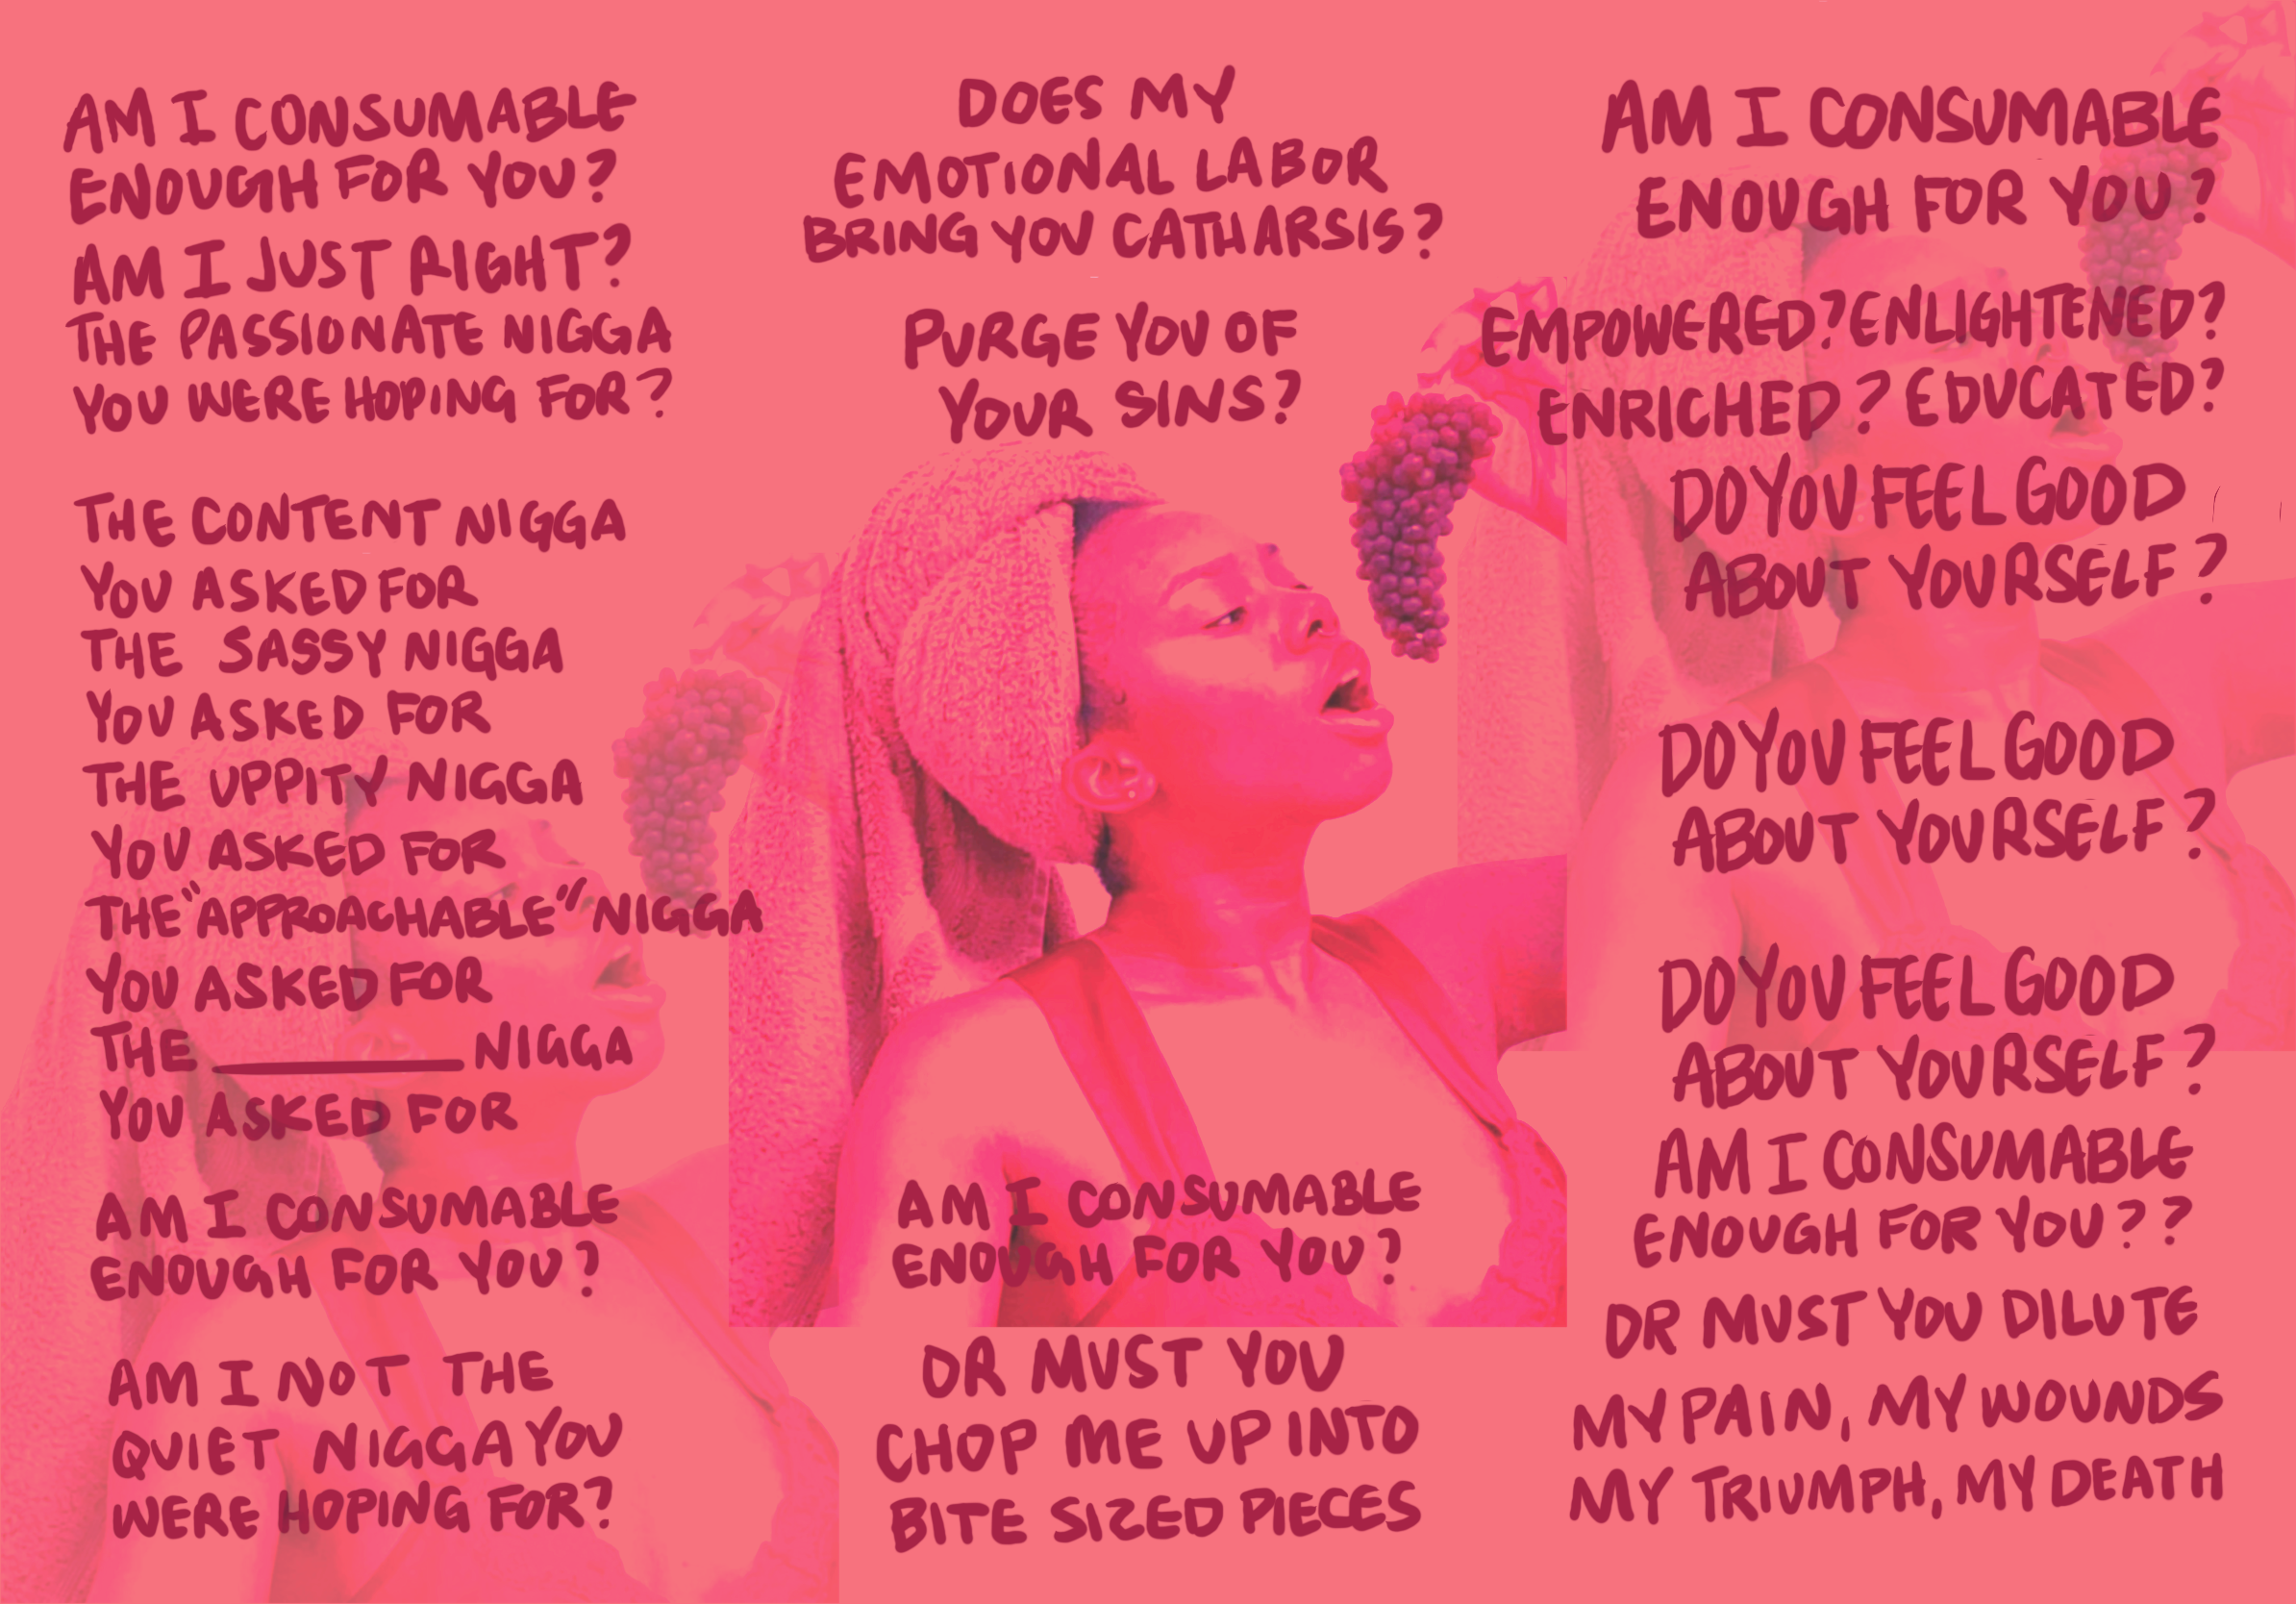 AM I CONSUMABLE
ENOUGH FOR YOU?
AM I JUST RIGHT?
THE PASSIONATE NIGGA
YOU WERE HOPING FOR?
THE CONTENT NIGGA
YOU ASKED FOR
THE SASSY NIGGA
YOU ASKED FOR
THE UPPITY NIGGA
YOU ASKED FOR
THE "APPROACHABLE" NIGGA
YOU ASKED FOR
THE ________ NIGGA
YOU ASKED FOR
AM I CONSUMABLE
ENOUGH FOR YOU?
AM I NOT THE
QUIET NIGGA YOU
WERE HOPING FOR?
DOES MY
EMOTIONAL LABOR
BRING YOU CATHARSIS?
PURGE YOU OF
YOUR SINS?
AM I CONSUMABLE
ENOUGH FOR YOU?
OR MUST YOU
CHOP ME UP INTO
BITE SIZED PIECES
AM I CONSUMABLE
ENOUGH FOR YOU?
EMPOWERED? ENLIGHTENED?
ENRICHED? EDUCATED?
DO YOU FEEL GOOD
ABOUT YOURSELF?
DO YOU FEEL GOOD
ABOUT YOURSELF?
DO YOU FEEL GOOD
ABOUT YOURSELF?
AM I CONSUMABLE
ENOUGH FOR YOU??
OR MUST YOU DILUTE
MY PAIN, MY WOUNDS
MY TRIUMPH, MY DEATH